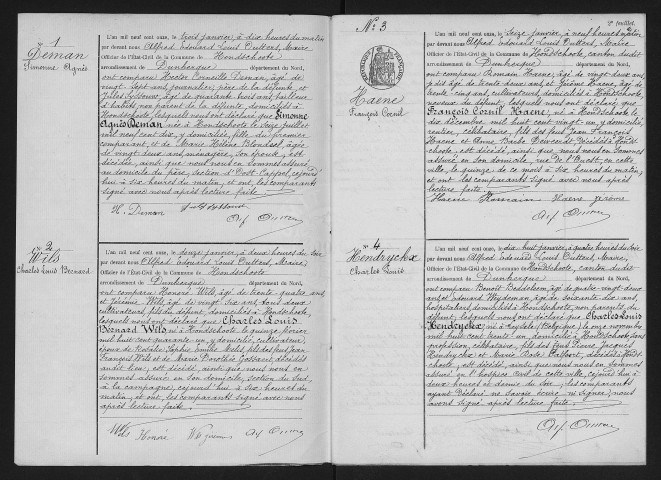 N° 1
Deman
Simonne Agnès
L'an mil neuf cent onze, le trois janvier, à dix heures du matin
par devant nous Alfred Edouard Louis Outters, Maire
Officier de l'État-Civil de la Commune de Hondschoote
arrondissement de Dunkerque département du Nord,
ont comparu Hector Corneille Deman, âgé de
vingt sept ans, père de la défunte, et
Jules âgé de quarante trois ans,
non parent de la défunte, domiciliés à
Hondschoote, lesquels nous ont déclaré que Simonne
Agnès Deman née à Hondschoote le seize juillet
mil neuf cent dix, y domiciliée, fille du premier
comparant, et de Marie Hélène Blondeel, âgée
de vingt deux ans, ménagère, son épouse, est
décédée, ainsi que nous nous en sommes assuré,
au domicile du père, section d'Oost Cappel, cejourd'
hui à six heures du matin, et ont, les comparants
signé avec nous après lecture faite.
H. Deman
N° 2
Wils
Charles Louis Bernard
L'an mil neuf cent onze, le douze janvier, à deux heures du soir
par devant nous Alfred Edouard Louis Outters, Maire
Officier de l'État-Civil de la Commune de Hondschoote
arrondissement de Dunkerque département du Nord,
ont comparu Honoré Wils, âgé de trente quatre ans
et Jérémie Wils, âgé de vingt six ans, tous deux
cultivateurs, fils du défunt, domiciliés à Hondschoote,
lesquels nous ont déclaré que Charles Louis
Bernard Wils, né à Hondschoote le quinze février
mil huit cent quarante un, y domicilié, cultivateur,
époux de Rosalie Sophie Emélie fils des feus Jean
François Wils et de Marie Dorothée décédés
audit lieu, est décédé, ainsi que nous nous en
sommes assuré en son domicile, section du Sud,
à la campagne, cejourd'hui à six heures du
matin, et ont, les comparants signé avec nous
après lecture faite.
Wils Honoré
2e feuillet.
N° 3
Haene
François Cornil
L'an mil neuf cent onze, le seize janvier, à neuf heures du matin
par devant nous Alfred Edouard Louis Outters, Maire
Officier de l'État-Civil de la Commune de Hondschoote, canton dudit
arrondissement de Dunkerque département du Nord,
ont comparu Romain Haene, âgé de
et Jérôme Haene, âgé de
cinq ans, cultivateurs, domiciliés à Hondschoote,
neveux du défunt, lesquels nous ont déclaré que
François Cornil Haene, né à Hondschoote le
dix décembre mil huit cent vingt un, y domicilié,
rentier, célibataire, fils des feus Jean François
Haene et Anne Barbe décédés à Hond-
schoote, est décédé, ainsi que nous nous en sommes
assuré en son domicile, rue de l'Ouest, en cette
ville, le quinze de ce mois à six heures du matin,
et ont les comparants signé avec nous après
lecture faite.
Haene Romain Haene Jérôme
N° 4
Hendryckx
Charles Louis
L'an mil neuf cent onze, le dix huit janvier, à quatre heures du soir
par devant nous Alfred Edouard Louis Outters, Maire
Officier de l'État-Civil de la Commune de Hondschoote, canton dudit
arrondissement de Dunkerque département du Nord,
ont comparu Benoît âgé de quatre vingt deux
ans et Edouard âgé de soixante dix ans,
domiciliés à Hondschoote, non parents du
défunt, lesquels nous ont déclaré que Charles Louis
Hendryckx, né à Belgique, le onze novembre
mil huit cent trente un, domicilié à Hondschoote, sans
profession, célibataire, fils des feus Pierre Jacques
Hendryckx et Marie Rose décédés à Hond-
schoote, est décédé, ainsi que nous nous en sommes
assuré en l'hospice civil de cette ville, cejourd'hui à
deux heures et demie du soir, les comparants
ayant déclaré ne savoir écrire ni signer, nous
avons signé après lecture faite.